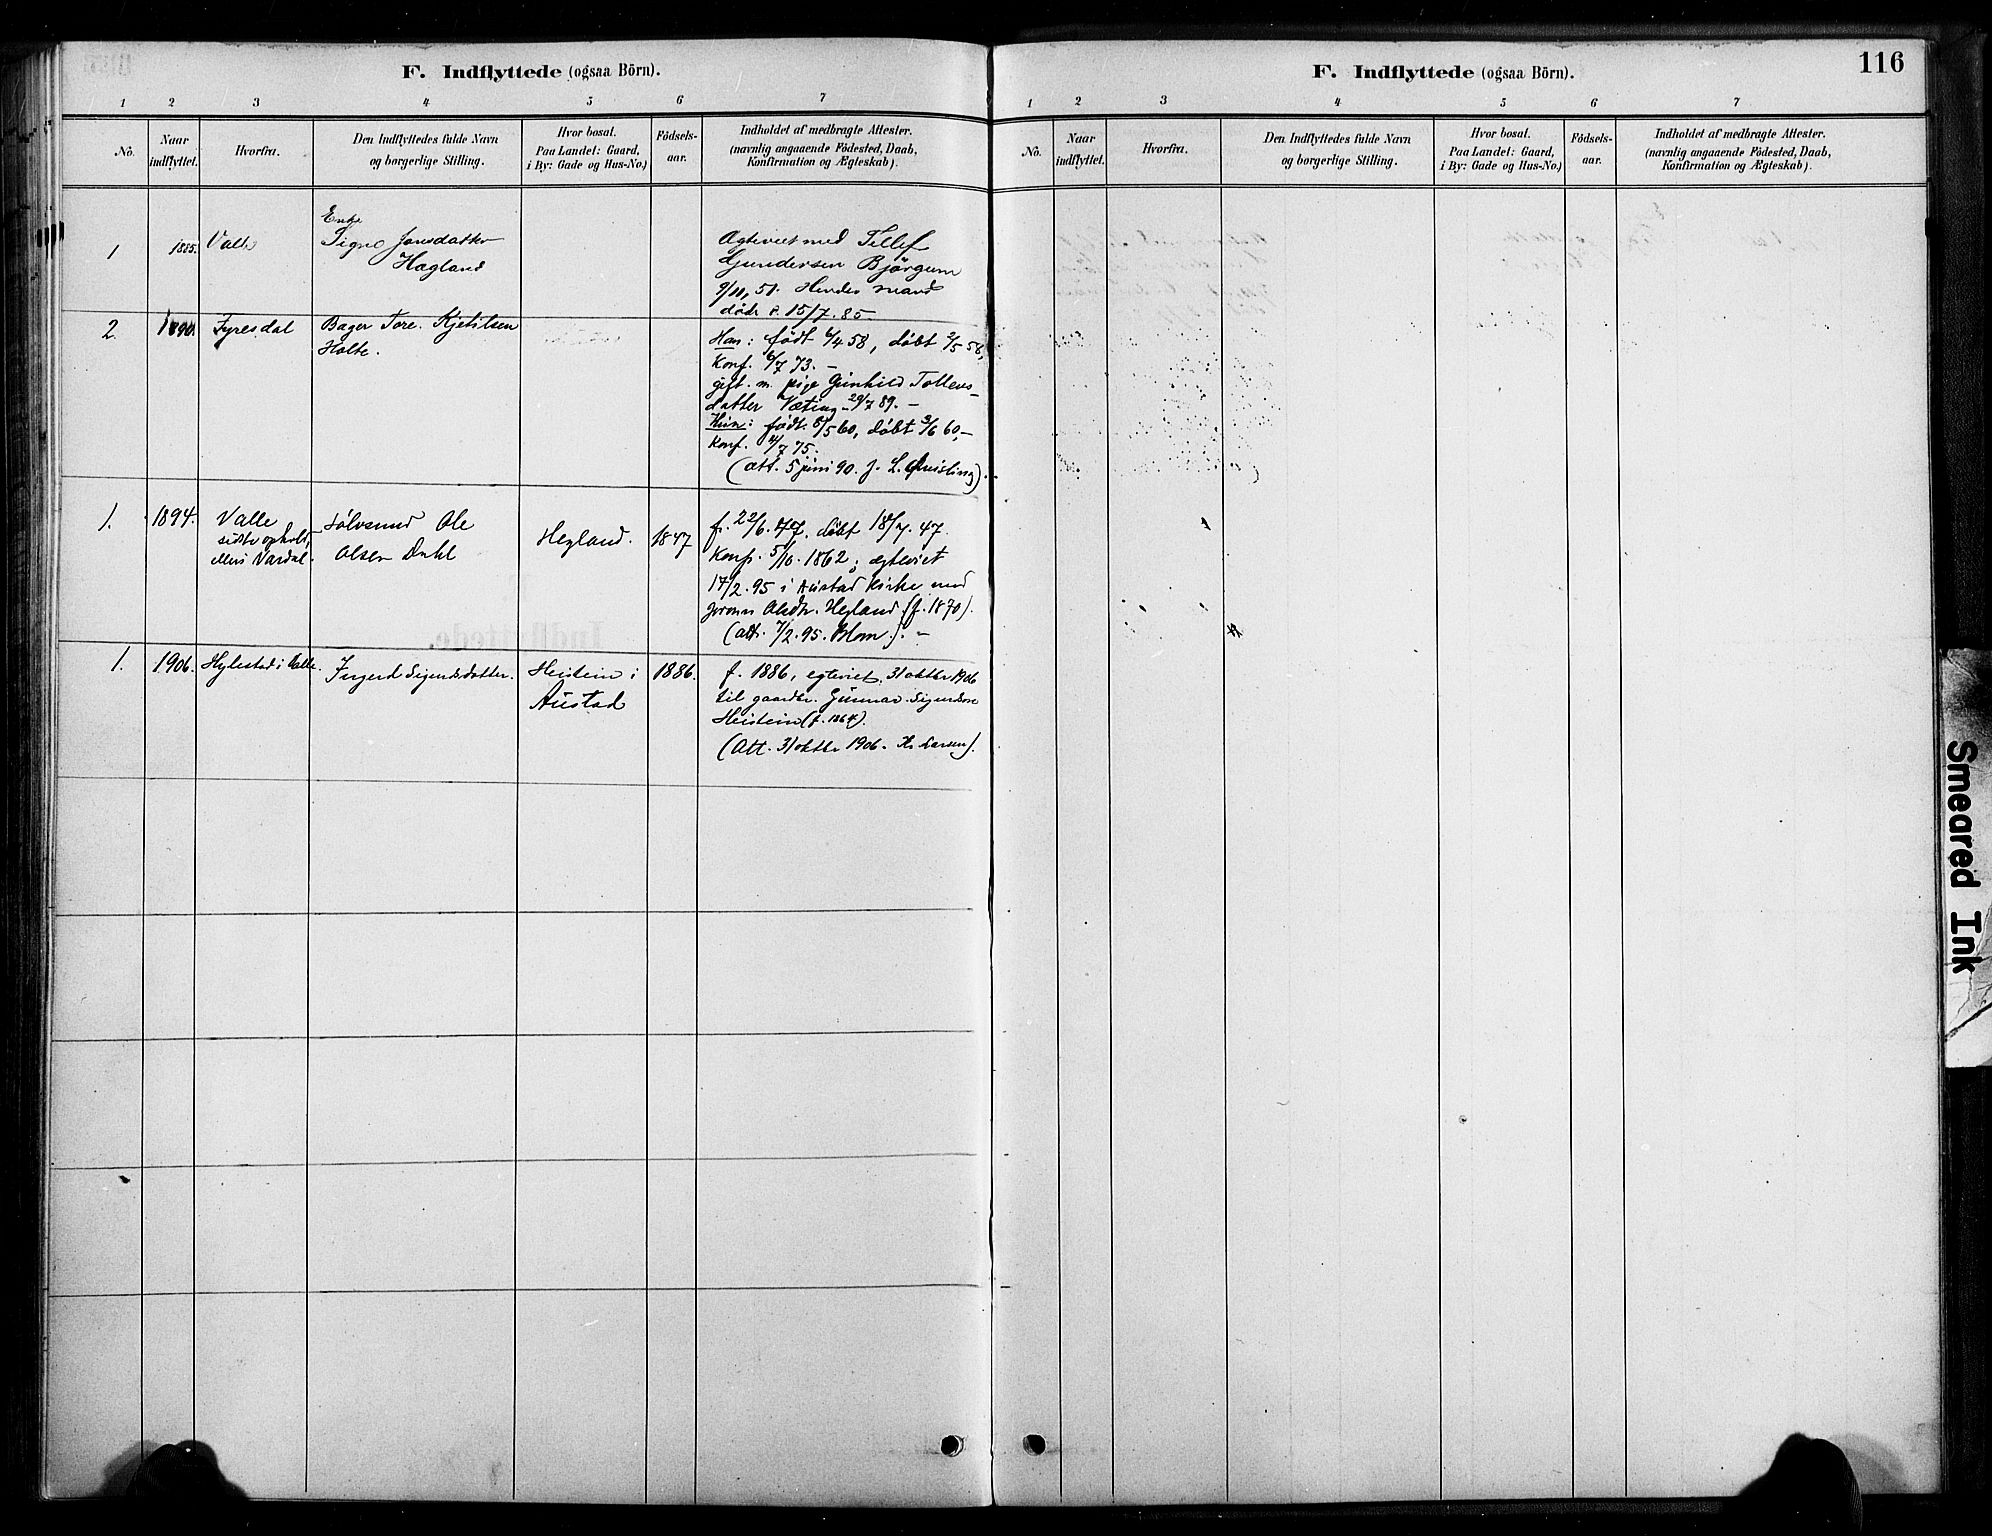 F. Indflyttede (ogsaa Börn).
1 2 3 4 5 6 7
No. Naar indflyttet. Hvorfra. Den Indflyttedes fulde Navn og borgerlige Stilling. Hvor bosat. Paa Landet: Gaard, i By: Gade og Hus-No.) Födsels-aar. Indholdet af medbragte Attester. (navnlig angaaende Födested, Daab, Konfirmation og Ægteskab).
1 1885. Valle Enke
Signe Jonsdatter
Hægland
Ægteviet med Tellef
Gundersen Björgum
9/11, 51. Hendes mand
döde d. 15/7. 85
2. 1890. Fyresdal Bager Tore Kjetilsen
Holte.
Han: født 6/4 58, døbt 2/5 58,
Konf. 6/7 73. –
gift. m. pige Gunhild Tollevs-
datter Væting 29/7 89. –
Hun: født 8/5 60, døbt 3/6 60, –
Konf. 4/7 75.
(att. 5 juni 90. J. L. Qvisling).
1. 1894. Valle
sidste ophold,
ellers Vardal.
Sølvsmed Ole
Olsen Dahl
Hegland. 1847
f. 22/6. 47, døbt 18/7. 47.
Konf. 5/10. 1862; ægteviet
17/2. 95 i Austad Kirke med
Joronn Olsdtr. Hegland (f. 1870).
(att. 7/2. 95. Blom). –
1. 1906. Hylestad i Valle. Ingerd Sigurdsdotter. Heistein i
Austad
1886.
f. 1886, egteviet 31 oktbr 1906
til gaardbr. Gunnar Sigurdson
Heistein (f. 1864).
(Att. 31 oktbr 1906. Kr Larsen).
F. Indflyttede (ogsaa Börn).
116
1 2 3 4 5 6 7
No. Naar indflyttet. Hvorfra. Den Indflyttedes fulde Navn og borgerlige Stilling. Hvor bosat. Paa Landet: Gaard, i By: Gade og Hus-No.) Födsels-aar. Indholdet af medbragte Attester. (navnlig angaaende Födested, Daab, Konfirmation og Ægteskab).
Smeared Ink